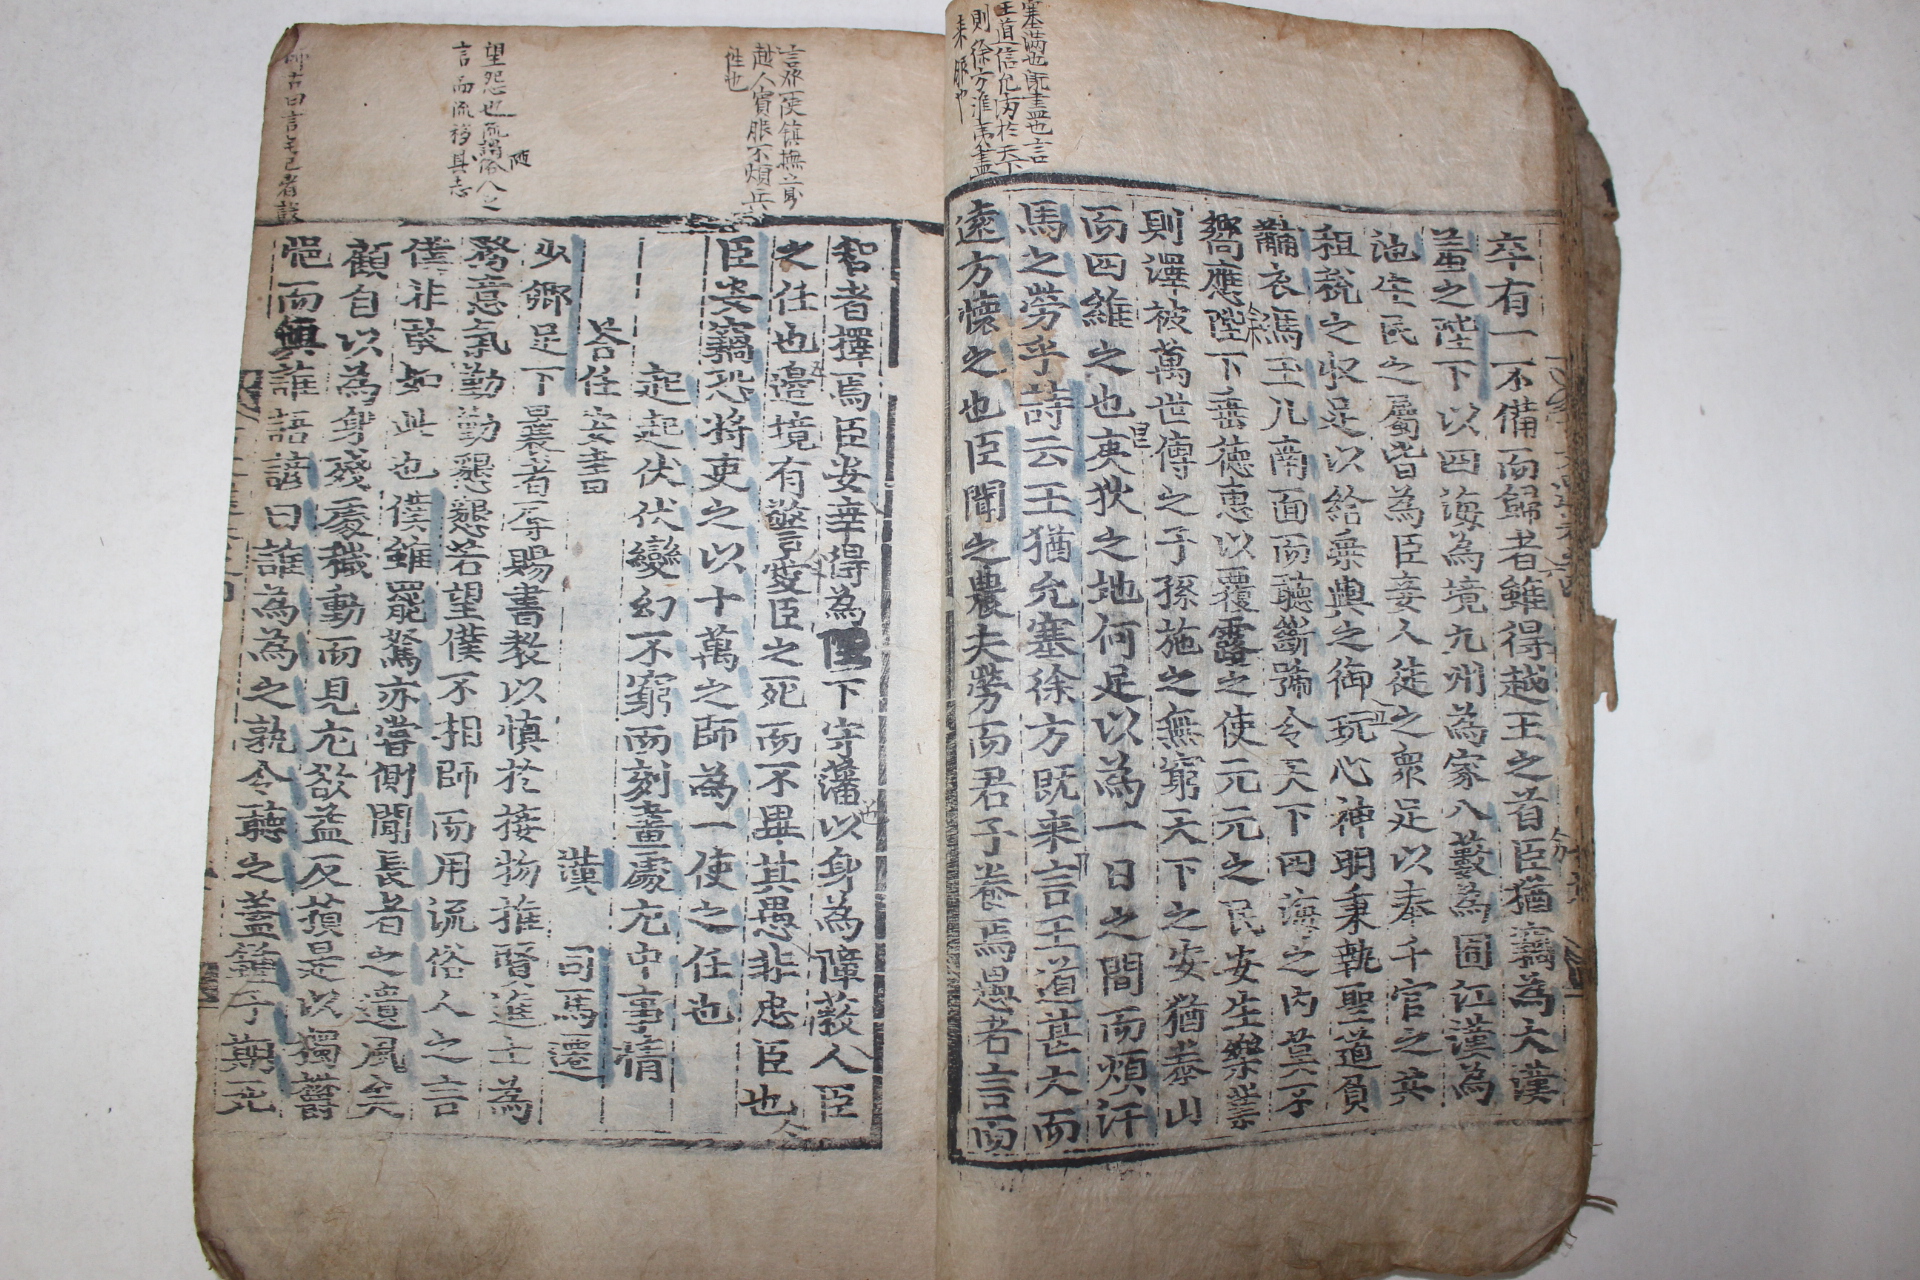 塞滿也旣盡也言
王道信允內於天下
則徐方淮夷盡
来服也
卒有一不備而歸者雖得越王之首臣猶竊為大漢
羞之陛下以四海為境九州為家八藪為囿江漢為
池生民之屬皆為臣妾人徒之衆足以奉千官之共
租稅之收足以給乗輿之御玩心神明秉執聖道負
黼衣馮玉几南面而聽斷號令天下四海之内莫不
嚮應陛下垂德惠以覆露之使元元之民安生樂業
則澤被萬世傳之子孫施之無窮天下之安猶泰山
而四維之也夷狄之地何足以為一日之間而煩汗
馬之勞乎詩云王猶允塞徐方既来言王道甚大而
遠方懷之也臣聞之農夫勞而君子養焉愚者言而
言發一使鎮撫之則
越人賓服不煩兵
往也
望怨也流謂隨俗人之
言而流移其志
智者擇焉臣安幸得為陛下守藩以身為障蔽人臣
之任也邊境有警愛臣之死而不畢其愚非忠臣也
臣安竊恐將吏之以十萬之師為一使之任也
起起伏伏變幻不窮而刻畫處尤中事情
荅任安書 漢 司馬遷
少卿足下曩者辱賜書教以慎於接物推賢進士為
務意氣勤勤懇懇若望僕不相師而用流俗人之言
僕非敢如此也僕雖罷駑亦嘗側聞長者之遺風矣
顧自以為身殘處穢動而見尤欲益反損是以獨鬱
悒而與誰語諺曰誰為為之孰令聽之蓋鍾子期死